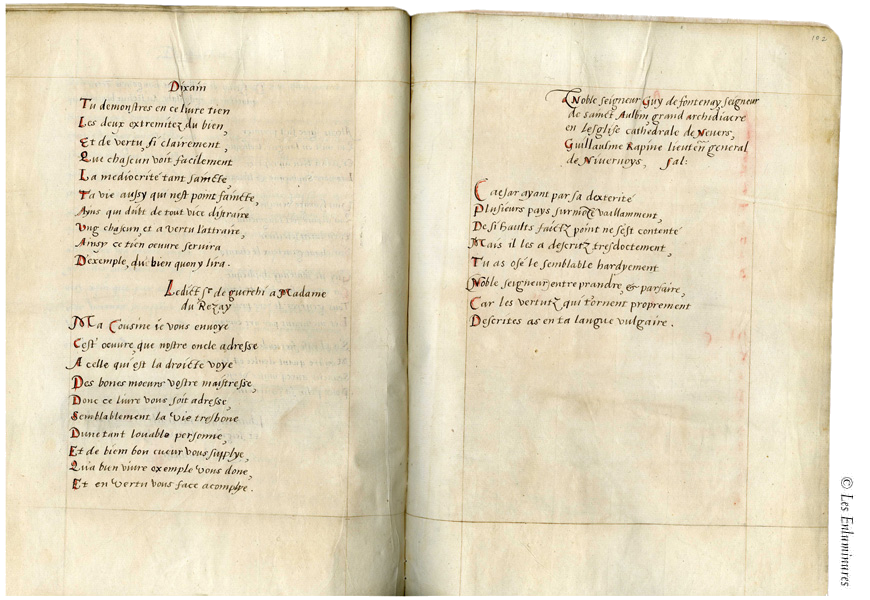 Dixain
Tu demonstres en ce livre tien
Les deux extremitez du bien,
Et de vertu, si clairement,
Que chascun voit facilement
La mediocrité tant saincte,
Ta vie aussy qui nest point faincte,
qui doibt de tout vice distraire
Ung chascun, et a vertu l'attraire,
Ainsy ce tien oeuvre servira
D'exemple, du bien quon y lira.
Ledict Sr de guerchi a Madame
du Rezay
Ma Cousine ie vous envoye
Cest oeuvre, que nostre oncle adresse
A celle qui est la droicte voye
Des bones moeurs vostre maistresse,
Donc ce livre vous soit adresse,
Semblablement la vie tresbone
Dune tant louable personne,
Et de biem bon cueur vous supplye,
Qu'a bien vivre exemple vous done,
Et en vertu vous face acomplye.
102
A Noble seigneur Guy de fontenay, seigneur
de sainct Aulbin, grand archidiacre
en lesglise cathedrale de Nevers,
Guillaulme Rapine lieuten̄ general
de Nivernoys, sal:
Caesar ayant par sa dexterité
Plusieurs pays surmōtez vaillamment,
De si haults faictz point ne sest contenté
Mais il les a descritz tresdoctement,
Tu as osé le semblable hardyement
Noble seigneur entreprandre, & parfaire,
Car les vertutz qui t'ornent proprement
Descrites as en ta langue vulgaire.
© Les Enluminures